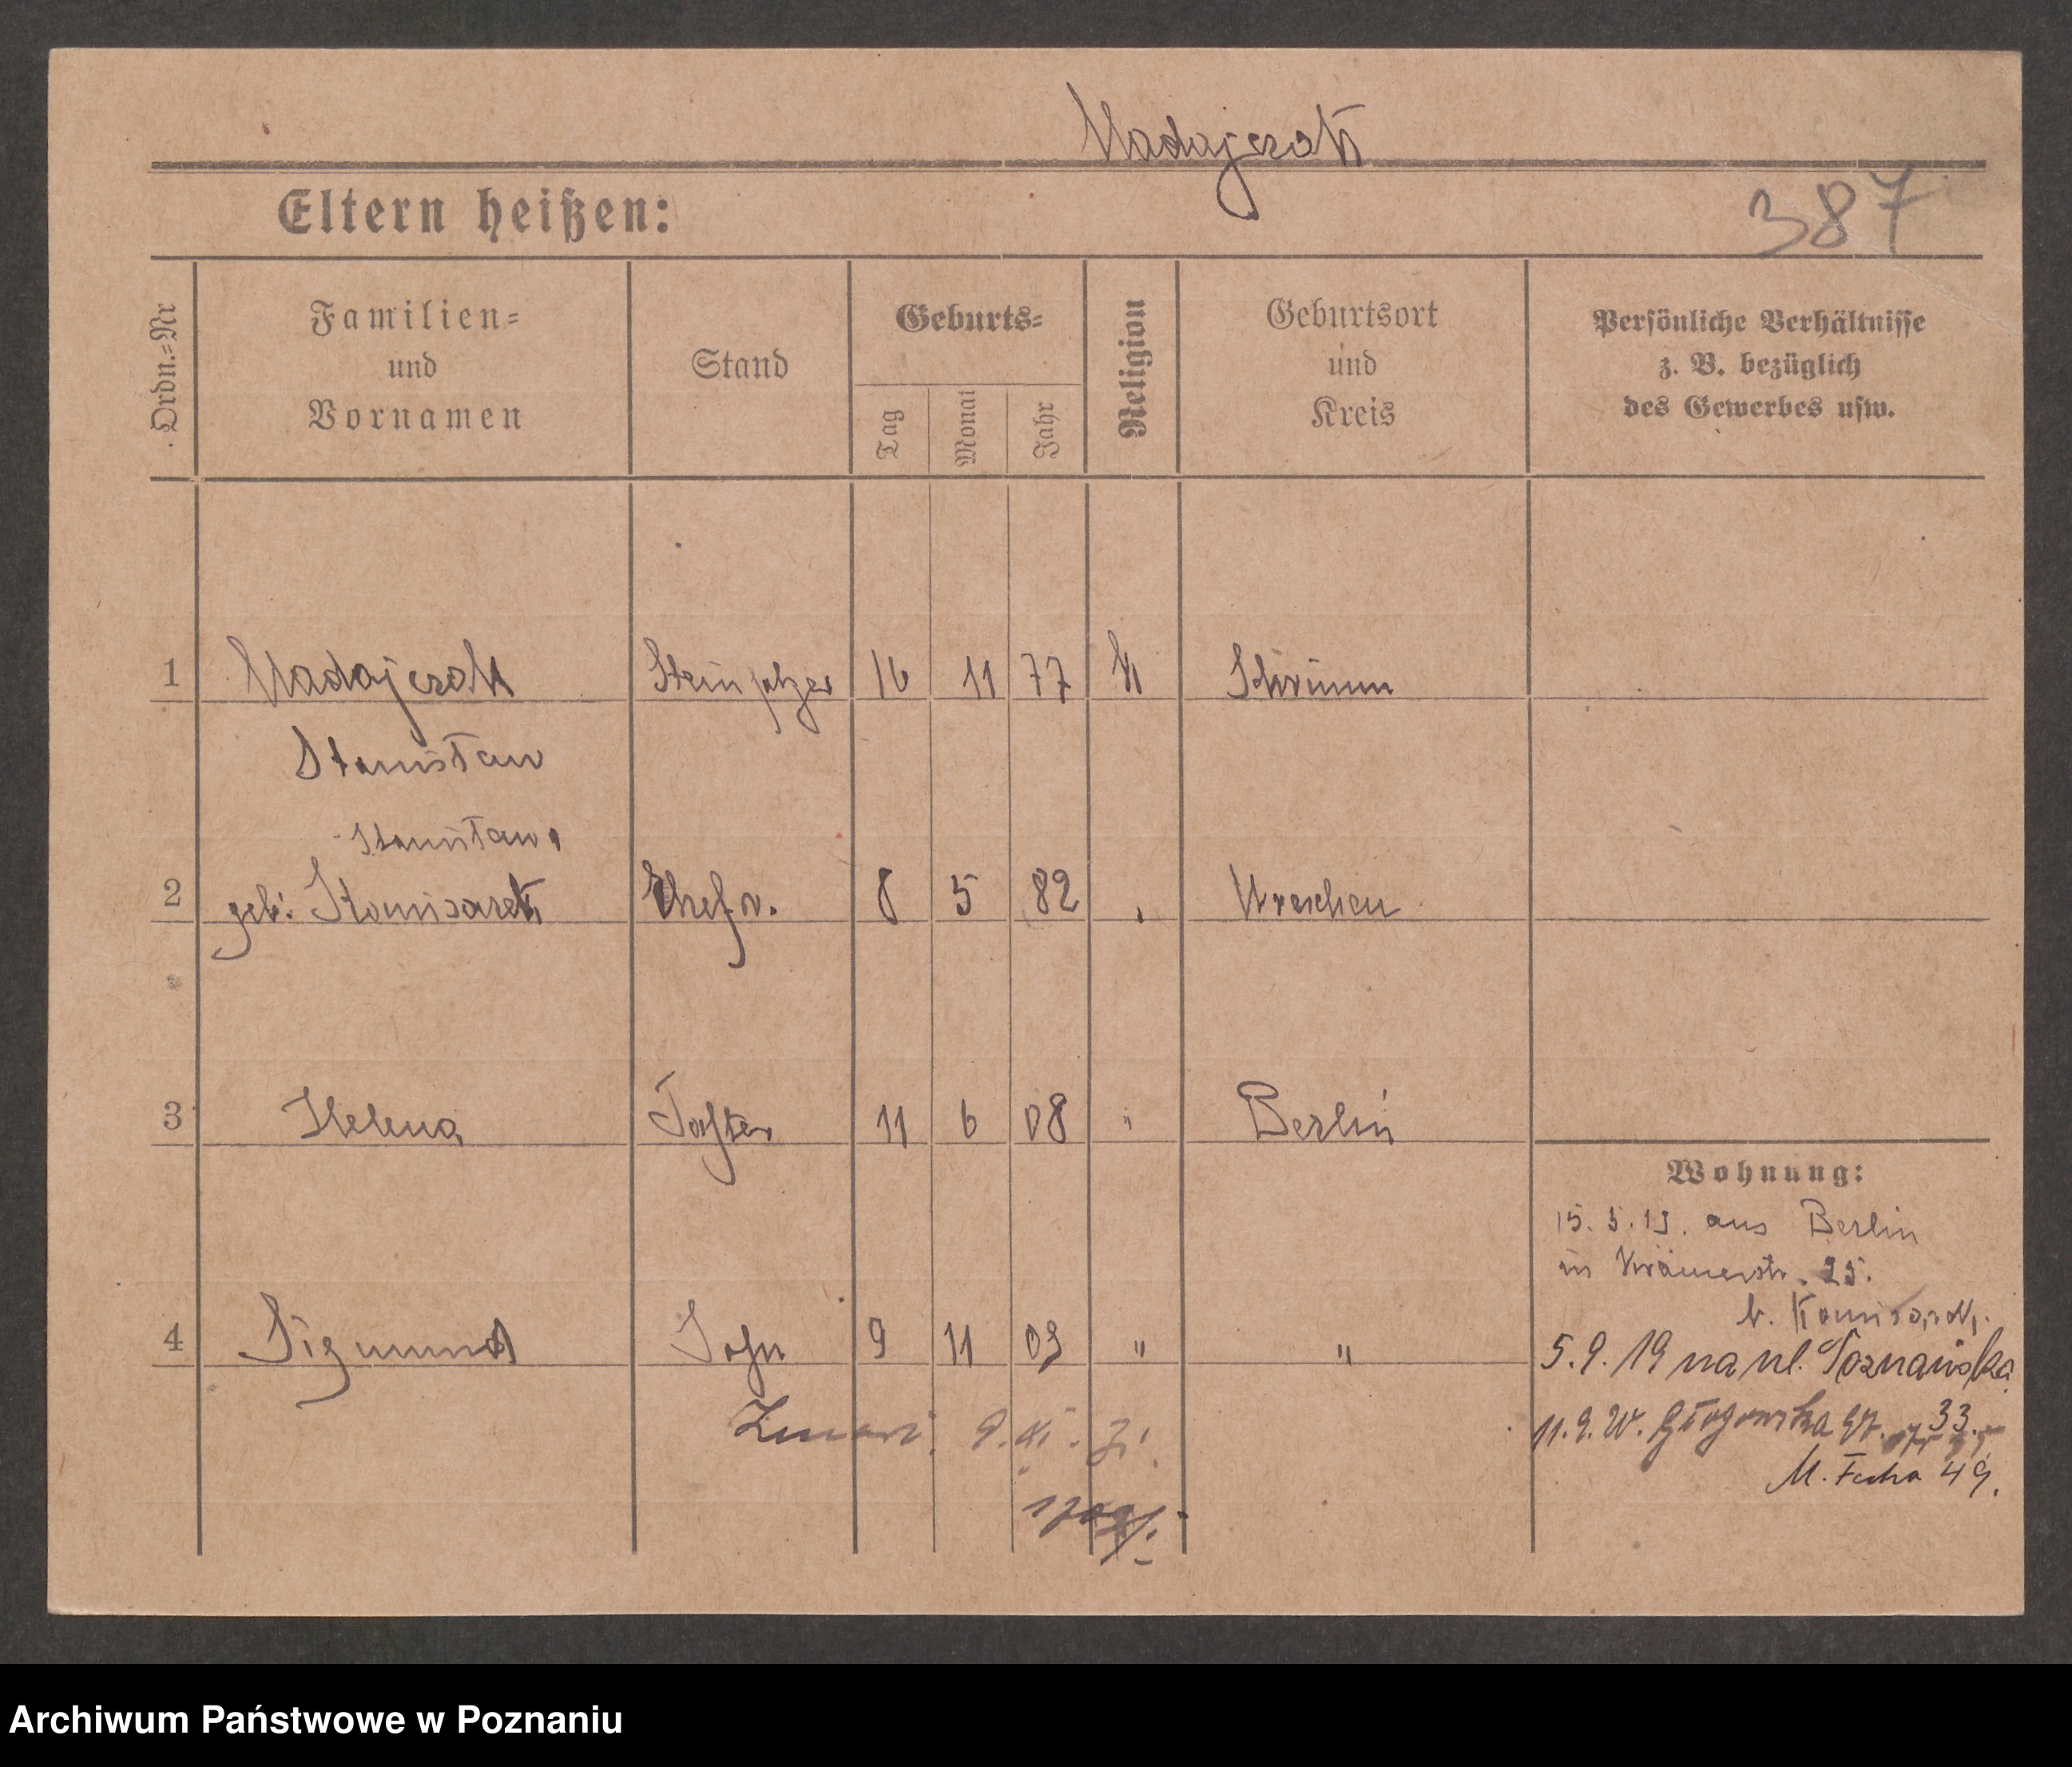 Madajczak
Eltern heißen:
387
Ordn.=Nr
Familien=
und
Vornamen
Stand
Geburts=
Tag
Monat
Jahr
Religion
Geburtsort
und
Kreis
Persönliche Verhältnisse
z. B. bezüglich
des Gewerbes usw.
1 Madajczak Steinsetzer 16 11 77 K Schrimm
Stanisław
Stanisława
2 geb. Komisarek Ehefr. 8 5 82 Wreschen
3 Helena Tochter 11 6 08 " Berlin
Wohnung:
15. 5. 19. aus Berlin
in Krämerstr. 25.
b. Komisarek.
4 Sigmund Sohn 9 11 09 " "
5.9.19 na ul. Poznańska
Zmarł. 9.
11.9. W. Głogowska 97. 33.
49.
Archiwum Państwowe w Poznaniu